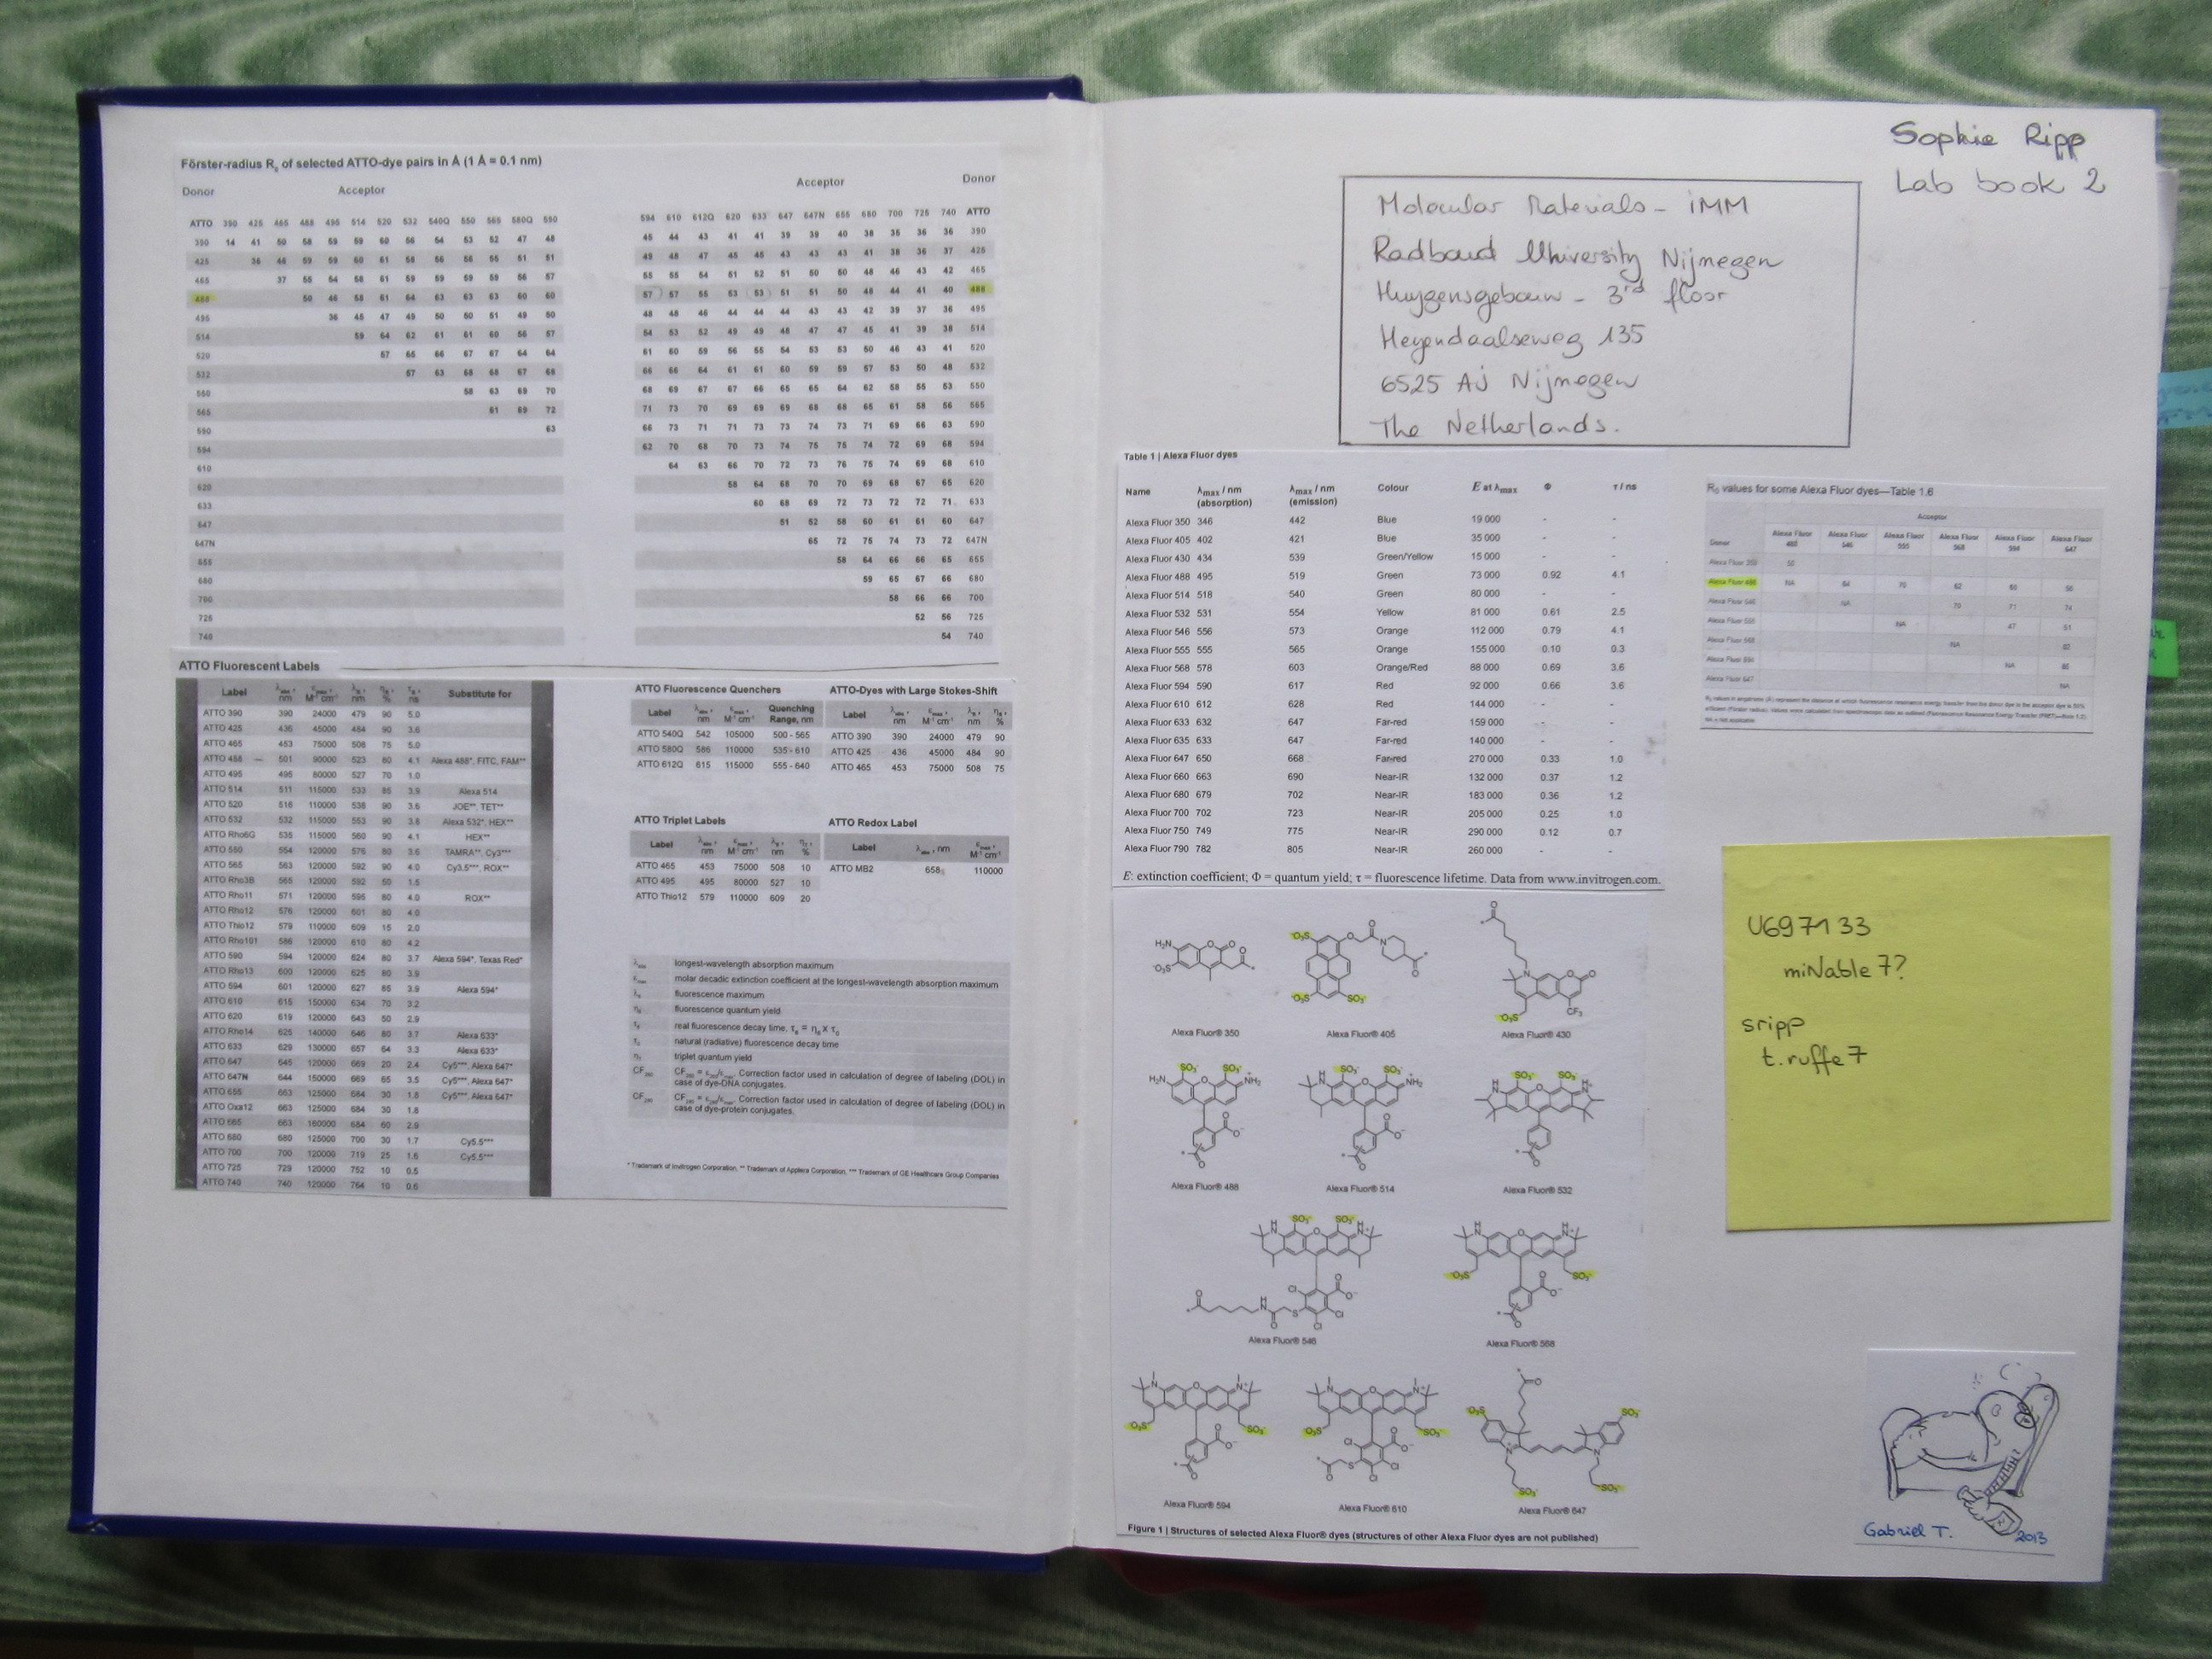 Förster-radius R₀ of selected ATTO-dye pairs in Å (1 Å = 0.1 nm)
Donor Acceptor
ATTO 390 425 465 488 495 514 520 532 540Q 550 565 580Q 590
390 14 41 50 58 59 59 60 56 54 53 52 47 48
425 36 46 59 59 60 61 58 56 56 55 51 51
465 37 55 54 58 61 59 59 59 59 56 57
488 50 46 58 61 64 63 63 63 60 60
495 36 45 47 49 50 50 51 49 50
514 59 64 62 61 61 60 56 57
520 57 65 66 67 67 64 64
532 57 63 68 68 67 68
550 58 63 69 70
565 61 69 72
590 63
594
610
620
633
647
647N
655
680
700
725
740
Acceptor Donor
594 610 612Q 620 633 647 647N 655 680 700 725 740 ATTO
45 44 43 41 41 39 39 40 38 35 36 36 390
49 48 47 45 45 43 43 43 41 38 36 37 425
55 55 54 51 52 51 50 50 48 46 43 42 465
57 57 55 53 53 51 51 50 48 44 41 40 488
48 48 46 44 44 44 43 43 42 39 37 36 495
54 53 52 49 49 48 47 47 45 41 39 38 514
61 60 59 56 55 54 53 53 50 46 43 41 520
66 66 64 61 61 60 59 59 57 53 50 48 532
68 69 67 67 66 65 65 64 62 58 55 53 550
71 73 70 69 69 69 68 68 65 61 58 56 565
66 73 71 71 73 73 74 73 71 69 66 63 590
62 70 68 70 73 74 75 75 74 72 69 68 594
64 63 66 70 72 73 76 75 74 69 68 610
58 64 68 70 70 69 68 67 65 620
60 68 69 72 73 72 72 71 633
51 52 58 60 61 61 60 647
65 72 75 74 73 72 647N
58 64 66 66 65 655
59 65 67 66 680
58 66 66 700
52 56 725
54 740
ATTO Fluorescent Labels
Label λabs, nm εmax, M⁻¹ cm⁻¹ λfl, nm ηfl, % τfl, ns Substitute for
ATTO 390 390 24000 479 90 5.0
ATTO 425 436 45000 484 90 3.6
ATTO 465 453 75000 508 75 5.0
ATTO 488 501 90000 523 80 4.1 Alexa 488*, FITC, FAM**
ATTO 495 495 80000 527 70 1.0
ATTO 514 511 115000 533 85 3.9 Alexa 514
ATTO 520 516 110000 538 90 3.6 JOE**, TET**
ATTO 532 532 115000 553 90 3.8 Alexa 532*, HEX**
ATTO Rho6G 535 115000 560 90 4.1 HEX**
ATTO 550 554 120000 576 80 3.6 TAMRA**, Cy3***
ATTO 565 563 120000 592 90 4.0 Cy3.5***, ROX**
ATTO Rho3B 565 120000 592 50 1.5
ATTO Rho11 571 120000 595 80 4.0 ROX**
ATTO Rho12 576 120000 601 80 4.0
ATTO Thio12 579 110000 609 15 2.0
ATTO Rho101 586 120000 610 80 4.2
ATTO 590 594 120000 624 80 3.7 Alexa 594*, Texas Red*
ATTO Rho13 600 120000 625 80 3.9
ATTO 594 601 120000 627 85 3.9 Alexa 594*
ATTO 610 615 150000 634 70 3.2
ATTO 620 619 120000 643 50 2.9
ATTO Rho14 625 140000 646 80 3.7 Alexa 633*
ATTO 633 629 130000 657 64 3.3 Alexa 633*
ATTO 647 645 120000 669 20 2.4 Cy5***, Alexa 647*
ATTO 647N 644 150000 669 65 3.5 Cy5***, Alexa 647*
ATTO 655 663 125000 684 30 1.8 Cy5***, Alexa 647*
ATTO Oxa12 663 125000 684 30 1.8
ATTO 665 663 160000 684 60 2.9
ATTO 680 680 125000 700 30 1.7 Cy5.5***
ATTO 700 700 120000 719 25 1.6 Cy5.5***
ATTO 725 729 120000 752 10 0.5
ATTO 740 740 120000 764 10 0.6
ATTO Fluorescence Quenchers
Label λabs, nm εmax, M⁻¹ cm⁻¹ Quenching Range, nm
ATTO 540Q 542 105000 500 - 565
ATTO 580Q 586 110000 535 - 610
ATTO 612Q 615 115000 555 - 640
ATTO-Dyes with Large Stokes-Shift
Label λabs, nm εmax, M⁻¹ cm⁻¹ λfl, nm ηfl, %
ATTO 390 390 24000 479 90
ATTO 425 436 45000 484 90
ATTO 465 453 75000 508 75
ATTO Triplet Labels
Label λabs, nm εmax, M⁻¹ cm⁻¹ λfl, nm ηT, %
ATTO 465 453 75000 508 10
ATTO 495 495 80000 527 10
ATTO Thio12 579 110000 609 20
ATTO Redox Label
Label λabs, nm εmax, M⁻¹ cm⁻¹
ATTO MB2 658 110000
λabs longest-wavelength absorption maximum
εmax molar decadic extinction coefficient at the longest-wavelength absorption maximum
λfl fluorescence maximum
ηfl fluorescence quantum yield
τfl real fluorescence decay time, τfl = ηfl x τ0
τ0 natural (radiative) fluorescence decay time
ηT triplet quantum yield
CF260 CF260 = ε260/εmax. Correction factor used in calculation of degree of labeling (DOL) in
case of dye-DNA conjugates.
CF280 CF280 = ε280/εmax. Correction factor used in calculation of degree of labeling (DOL) in
case of dye-protein conjugates.
* Trademark of Invitrogen Corporation, ** Trademark of Applera Corporation, *** Trademark of GE Healthcare Group Companies
Sophie Ripp
Lab book 2
Molecular Materials - iMM
Radboud University Nijmegen
Huygensgebouw - 3rd floor
Heyendaalseweg 135
6525 AJ Nijmegen
The Netherlands.
Table 1 | Alexa Fluor dyes
Name λmax / nm (absorption) λmax / nm (emission) Colour E at λmax Φ τ / ns
Alexa Fluor 350 346 442 Blue 19 000 - -
Alexa Fluor 405 402 421 Blue 35 000 - -
Alexa Fluor 430 434 539 Green/Yellow 15 000 - -
Alexa Fluor 488 495 519 Green 73 000 0.92 4.1
Alexa Fluor 514 518 540 Green 80 000 - -
Alexa Fluor 532 531 554 Yellow 81 000 0.61 2.5
Alexa Fluor 546 556 573 Orange 112 000 0.79 4.1
Alexa Fluor 555 555 565 Orange 155 000 0.10 0.3
Alexa Fluor 568 578 603 Orange/Red 88 000 0.69 3.6
Alexa Fluor 594 590 617 Red 92 000 0.66 3.6
Alexa Fluor 610 612 628 Red 144 000 - -
Alexa Fluor 633 632 647 Far-red 159 000 - -
Alexa Fluor 635 633 647 Far-red 140 000 - -
Alexa Fluor 647 650 668 Far-red 270 000 0.33 1.0
Alexa Fluor 660 663 690 Near-IR 132 000 0.37 1.2
Alexa Fluor 680 679 702 Near-IR 183 000 0.36 1.2
Alexa Fluor 700 702 723 Near-IR 205 000 0.25 1.0
Alexa Fluor 750 749 775 Near-IR 290 000 0.12 0.7
Alexa Fluor 790 782 805 Near-IR 260 000 - -
E: extinction coefficient; Φ = quantum yield; τ = fluorescence lifetime. Data from www.invitrogen.com.
R₀ values for some Alexa Fluor dyes—Table 1.6
Acceptor
Donor Alexa Fluor 488 Alexa Fluor 546 Alexa Fluor 555 Alexa Fluor 568 Alexa Fluor 594 Alexa Fluor 647
Alexa Fluor 350 50
Alexa Fluor 488 NA 64 70 62 60 56
Alexa Fluor 546 NA 70 71 74
Alexa Fluor 555 NA 47 51
Alexa Fluor 568 NA 82
Alexa Fluor 594 NA 85
Alexa Fluor 647 NA
U697133
miNable 7?
sripp
t.ruffe7
Alexa Fluor® 350
Alexa Fluor® 405
Alexa Fluor® 430
Alexa Fluor® 488
Alexa Fluor® 514
Alexa Fluor® 532
Alexa Fluor® 546
Alexa Fluor® 568
Alexa Fluor® 594
Alexa Fluor® 610
Alexa Fluor® 647
Figure 1 | Structures of selected Alexa Fluor® dyes (structures of other Alexa Fluor dyes are not published)
Gabriel T. 2013